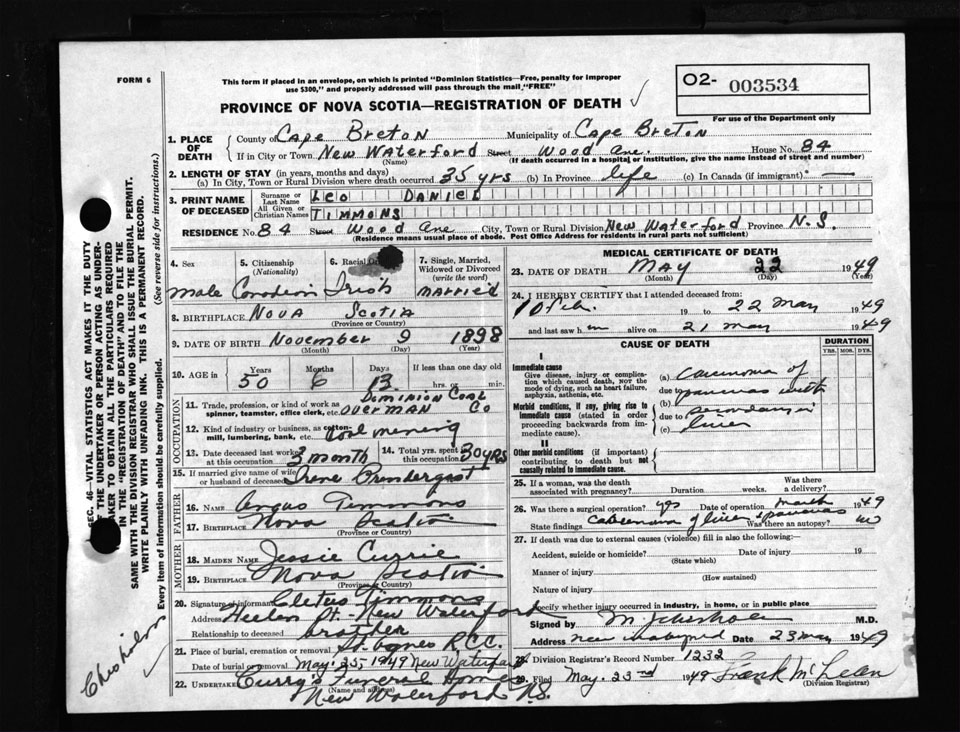 FORM 6
This form if placed in an envelope, on which is printed "Dominion Statistics—Free, penalty for improper
use $300," and properly addressed will pass through the mail "FREE"
PROVINCE OF NOVA SCOTIA—REGISTRATION OF DEATH
O2- 003534
For use of the Department only
SEC. 46—VITAL STATISTICS ACT MAKES IT THE DUTY
THE UNDERTAKER OR PERSON ACTING AS UNDER-
TAKER TO OBTAIN ALL THE PARTICULARS REQUIRED
IN THE "REGISTRATION OF DEATH" AND TO FILE THE
SAME WITH THE DIVISION REGISTRAR WHO SHALL ISSUE THE BURIAL PERMIT.
WRITE PLAINLY WITH UNFADING INK. THIS IS A PERMANENT RECORD.
Every item of information should be carefully supplied. (See reverse side for instructions.)
Chisholm
1. PLACE OF DEATH
County of Cape Breton Municipality of Cape Breton
If in City or Town New Waterford Street Wood Ave. House No. 84
(Name) (If death occurred in a hospital or institution, give the name instead of street and number)
2. LENGTH OF STAY (in years, months and days)
(a) In City, Town or Rural Division where death occurred 35 yrs (b) In Province life (c) In Canada (if immigrant) —
3. PRINT NAME OF DECEASED
Surname or Last Name LEO DANIEL
All Given or Christian Names TIMMONS
RESIDENCE No. 84 Street Wood Ave City, Town or Rural Division New Waterford Province N.S.
(Residence means usual place of abode. Post Office Address for residents in rural parts not sufficient)
4. Sex
male
5. Citizenship (Nationality)
Canadian
6. Racial
Irish
7. Single, Married, Widowed or Divorced (write the word)
MARRIED
8. BIRTHPLACE NOVA SCOTIA
(Province or Country)
9. DATE OF BIRTH November 9 1898
(Month) (Day) (Year)
10. AGE in Years Months Days If less than one day old
50 6 13 hrs. or min.
OCCUPATION
11. Trade, profession, or kind of work as spinner, teamster, office clerk, etc. OVERMAN DOMINION COAL CO
12. Kind of industry or business, as cotton-mill, lumbering, bank, etc. Coal mining
13. Date deceased last worked at this occupation 3 month
14. Total yrs. spent in this occupation 30 YRS
15. If married give name of wife or husband of deceased Irene Prendergast
FATHER
16. Name Angus Timmons
17. Birthplace Nova Scotia
(Province or Country)
MOTHER
18. Maiden Name Jessie Currie
19. Birthplace Nova Scotia
(Province or Country)
20. Signature of informant Cletus Timmons
Address Heelen St. New Waterford
Relationship to deceased brother
21. Place of burial, cremation or removal St. Agnes R.C.C.
Date of burial or removal May 25 1949 New Waterford
22. Undertaker Curry's Funeral Home
(Name and address)
New Waterford N.S.
MEDICAL CERTIFICATE OF DEATH
23. DATE OF DEATH MAY 22 1949
(Month) (Day) (Year)
24. I HEREBY CERTIFY that I attended deceased from:
10 Feb. 19 to 22 May 1949
and last saw h im alive on 21 May 1949
CAUSE OF DEATH
DURATION
YRS. MOS. DYS.
I
Immediate cause
Give disease, injury or complication which caused death, not the mode of dying, such as heart failure, asphyxia, asthenia, etc.
(a) Carcinoma of
due to
(b) pancreas with
Morbid conditions, if any, giving rise to immediate cause (stated in order proceeding backwards from immediate cause).
due to secondary in
(c) liver
II
Other morbid conditions (if important) contributing to death but not causally related to immediate cause.
25. If a woman, was the death associated with pregnancy? Duration weeks. Was there a delivery?
26. Was there a surgical operation? yes Date of operation March 1949
State findings Carcinoma of liver & pancreas Was there an autopsy? no
27. If death was due to external causes (violence) fill in also the following:
Accident, suicide or homicide? Date of injury 19
(State which)
Manner of injury
(How sustained)
Nature of injury
Specify whether injury occurred in industry, in home, or in public place
Signed by M. M.D.
Address New Waterford Date 23 May 1949
28. Division Registrar's Record Number 1232
29. Filed May. 23rd 1949 Frank McLean
(Division Registrar)